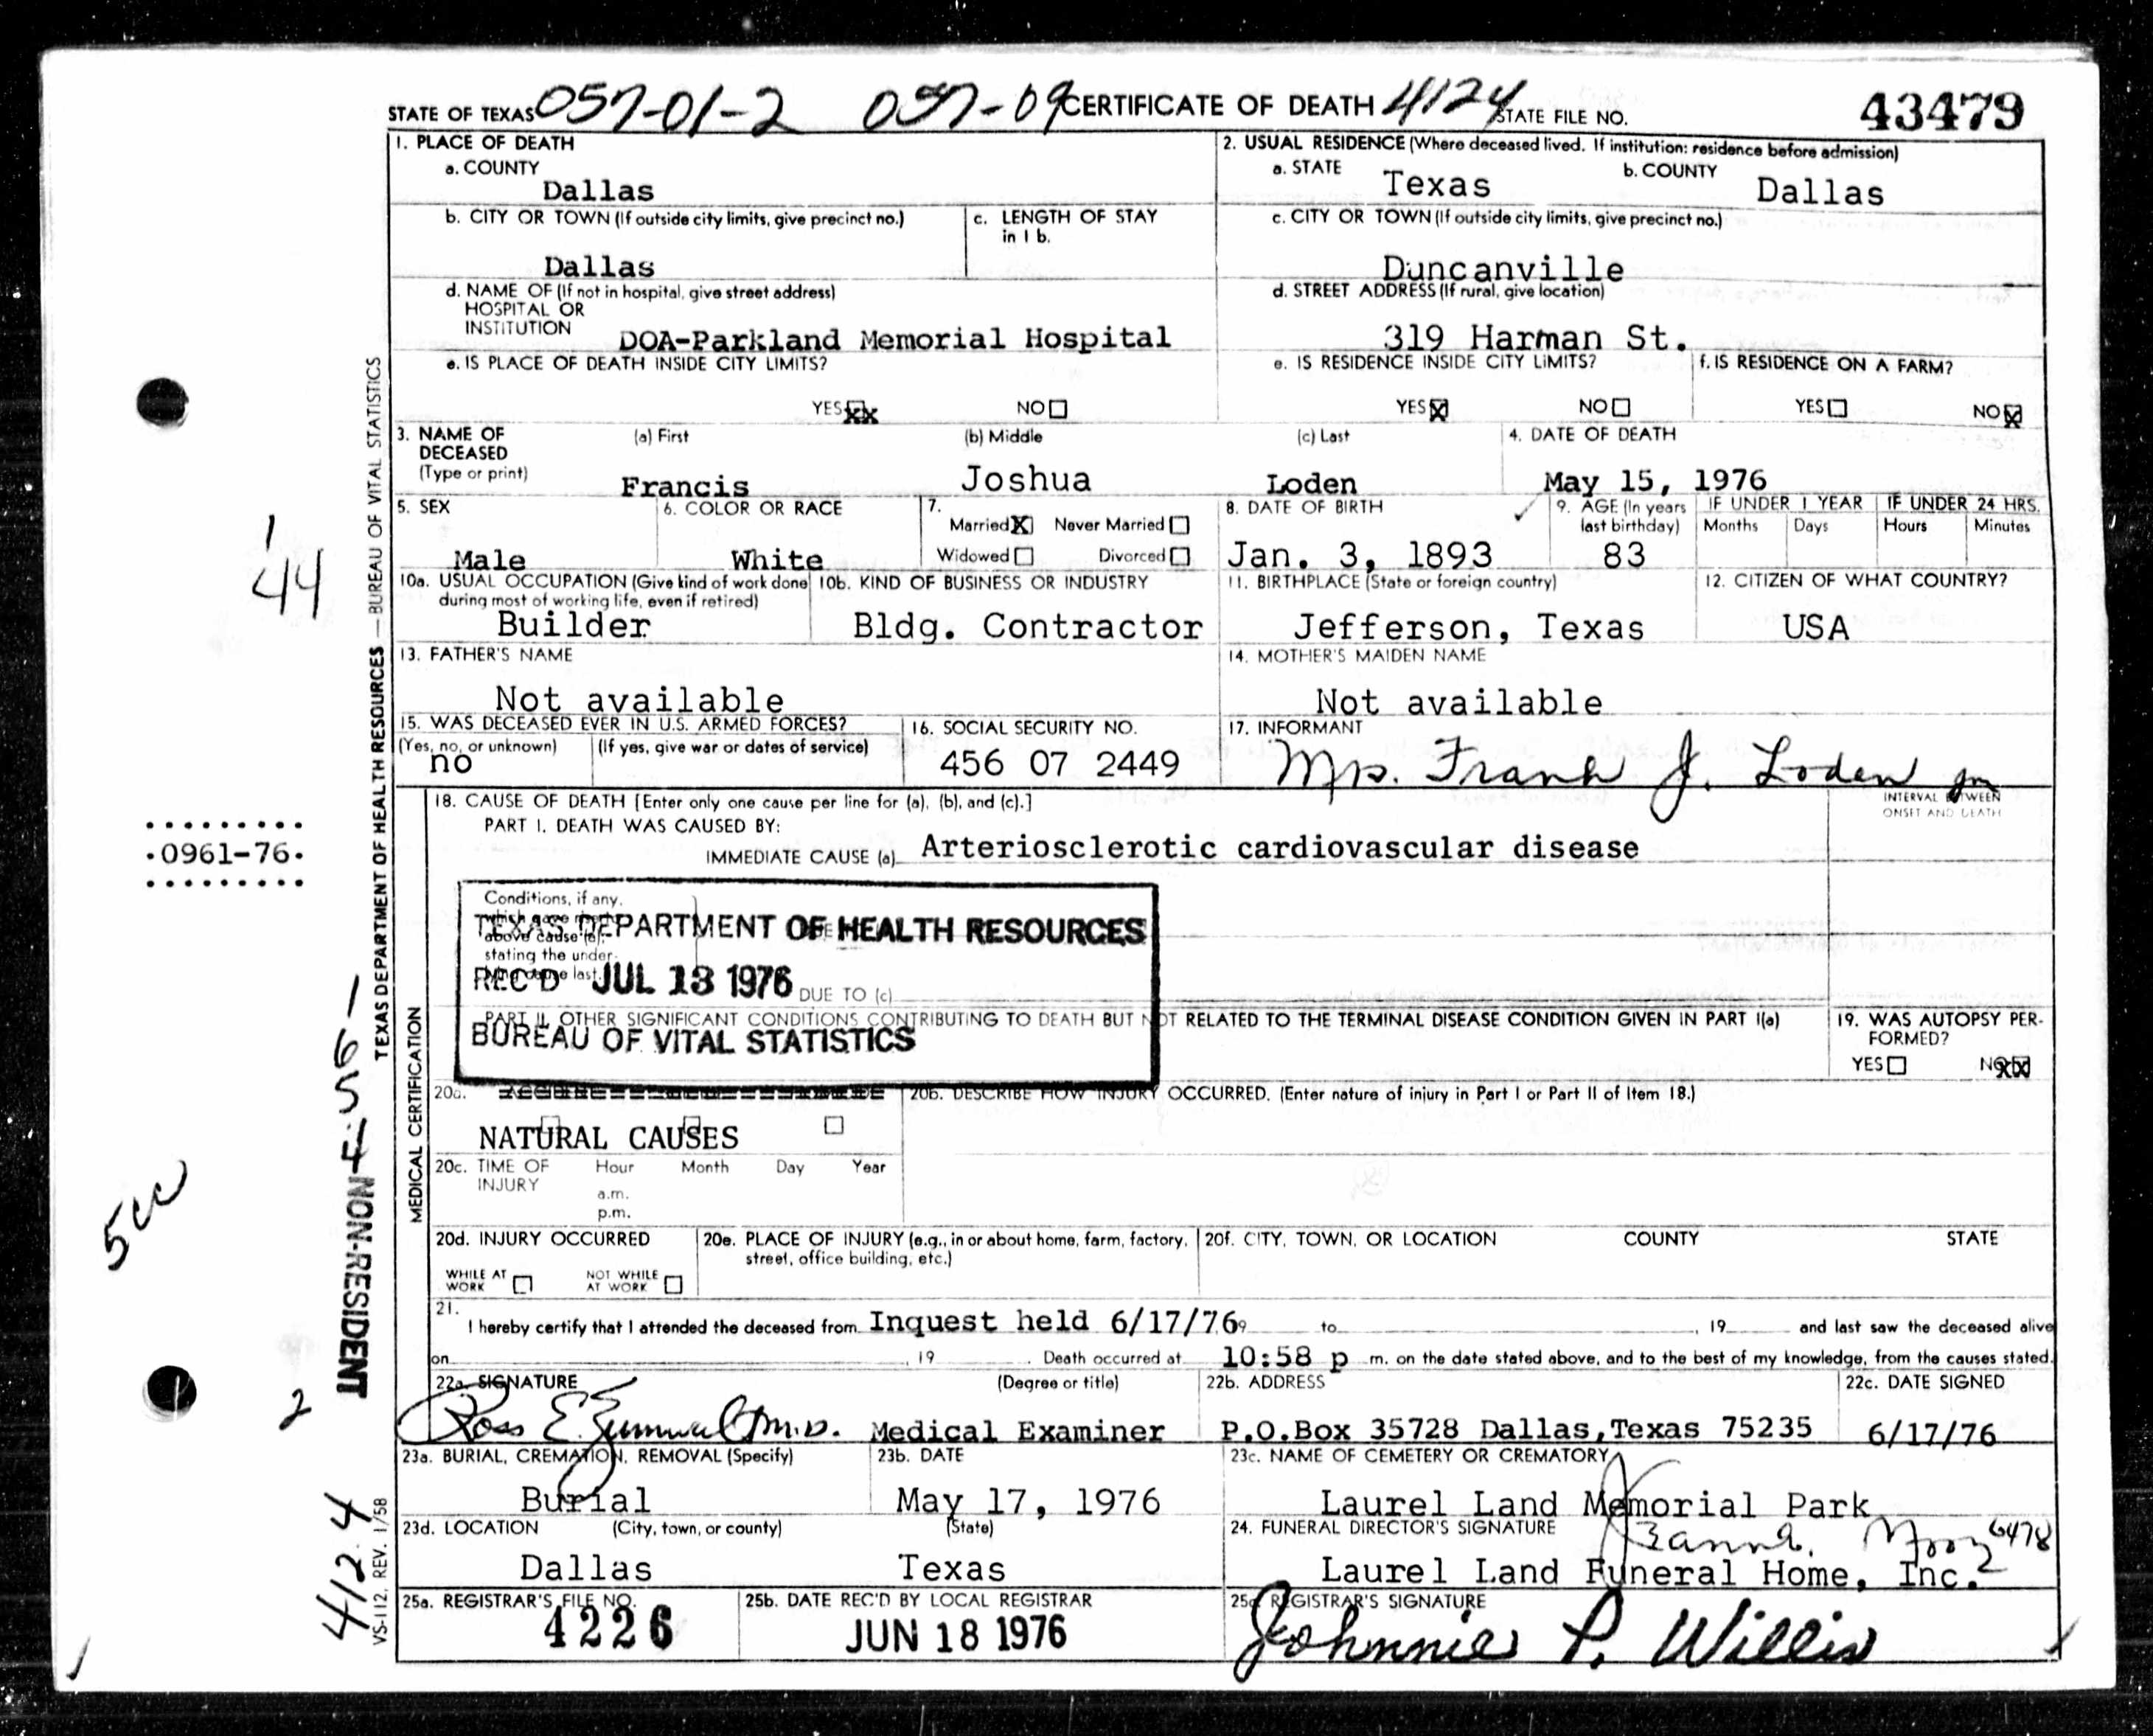 STATE OF TEXAS 057-01-2 057-09 CERTIFICATE OF DEATH 4124 STATE FILE NO. 43479
1. PLACE OF DEATH
a. COUNTY
Dallas
2. USUAL RESIDENCE (Where deceased lived. If institution: residence before admission)
a. STATE Texas b. COUNTY Dallas
b. CITY OR TOWN (If outside city limits, give precinct no.)
Dallas
c. LENGTH OF STAY
in 1 b.
c. CITY OR TOWN (If outside city limits, give precinct no.)
Duncanville
d. NAME OF (If not in hospital, give street address)
HOSPITAL OR
INSTITUTION DOA-Parkland Memorial Hospital
d. STREET ADDRESS (If rural, give location)
319 Harman St.
e. IS PLACE OF DEATH INSIDE CITY LIMITS?
YES xx NO
e. IS RESIDENCE INSIDE CITY LIMITS?
YES X NO
f. IS RESIDENCE ON A FARM?
YES NO X
3. NAME OF
DECEASED
(Type or print)
(a) First (b) Middle (c) Last
Francis Joshua Loden
4. DATE OF DEATH
May 15, 1976
5. SEX
Male
6. COLOR OR RACE
White
7.
Married X Never Married
Widowed Divorced
8. DATE OF BIRTH
Jan. 3, 1893
9. AGE (In years
last birthday)
83
IF UNDER 1 YEAR
Months Days
IF UNDER 24 HRS.
Hours Minutes
10a. USUAL OCCUPATION (Give kind of work done
during most of working life, even if retired)
Builder
10b. KIND OF BUSINESS OR INDUSTRY
Bldg. Contractor
11. BIRTHPLACE (State or foreign country)
Jefferson, Texas
12. CITIZEN OF WHAT COUNTRY?
USA
13. FATHER'S NAME
Not available
14. MOTHER'S MAIDEN NAME
Not available
15. WAS DECEASED EVER IN U.S. ARMED FORCES?
(Yes, no, or unknown) (If yes, give war or dates of service)
no
16. SOCIAL SECURITY NO.
456 07 2449
17. INFORMANT
Mrs. Frank J. Loden Jr
18. CAUSE OF DEATH [Enter only one cause per line for (a), (b), and (c).]
PART I. DEATH WAS CAUSED BY:
IMMEDIATE CAUSE (a) Arteriosclerotic cardiovascular disease
INTERVAL BETWEEN
ONSET AND DEATH
Conditions, if any,
which gave rise to
above cause (a),
stating the under-
lying cause last.
DUE TO (c)
TEXAS DEPARTMENT OF HEALTH RESOURCES
REC'D JUL 13 1976
BUREAU OF VITAL STATISTICS
PART II. OTHER SIGNIFICANT CONDITIONS CONTRIBUTING TO DEATH BUT NOT RELATED TO THE TERMINAL DISEASE CONDITION GIVEN IN PART I(a)
19. WAS AUTOPSY PER-
FORMED?
YES NO X
20a.
NATURAL CAUSES
20b. DESCRIBE HOW INJURY OCCURRED. (Enter nature of injury in Part I or Part II of Item 18.)
20c. TIME OF
INJURY
Hour Month Day Year
a.m.
p.m.
20d. INJURY OCCURRED
WHILE AT
WORK
NOT WHILE
AT WORK
20e. PLACE OF INJURY (e.g., in or about home, farm, factory,
street, office building, etc.)
20f. CITY, TOWN, OR LOCATION COUNTY STATE
21.
I hereby certify that I attended the deceased from Inquest held 6/17/76 to , 19 and last saw the deceased alive
on , 19 . Death occurred at 10:58 p m. on the date stated above, and to the best of my knowledge, from the causes stated.
22a. SIGNATURE (Degree or title)
Ross E. Zumwalt M.D. Medical Examiner
22b. ADDRESS
P.O.Box 35728 Dallas,Texas 75235
22c. DATE SIGNED
6/17/76
23a. BURIAL, CREMATION, REMOVAL (Specify)
Burial
23b. DATE
May 17, 1976
23c. NAME OF CEMETERY OR CREMATORY
Laurel Land Memorial Park
23d. LOCATION (City, town, or county) (State)
Dallas Texas
24. FUNERAL DIRECTOR'S SIGNATURE
6478
Laurel Land Funeral Home, Inc.
25a. REGISTRAR'S FILE NO.
4226
25b. DATE REC'D BY LOCAL REGISTRAR
JUN 18 1976
25c. REGISTRAR'S SIGNATURE
Johnnie P. Willis
MEDICAL CERTIFICATION
TEXAS DEPARTMENT OF HEALTH RESOURCES — BUREAU OF VITAL STATISTICS
VS-112. REV. 1/58
1
44
0961-76
NON-RESIDENT
2
4124